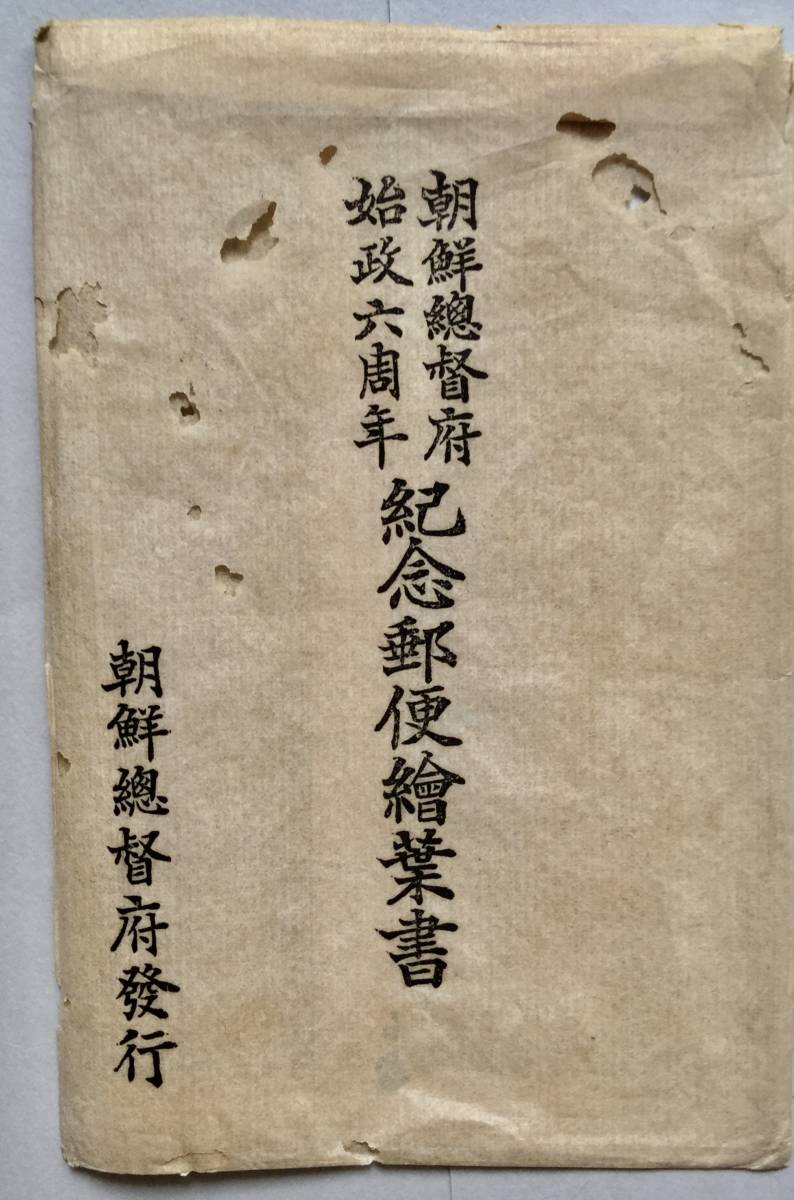 朝鮮總督府
始政六周年
紀念郵便繪葉書
朝鮮總督府發行